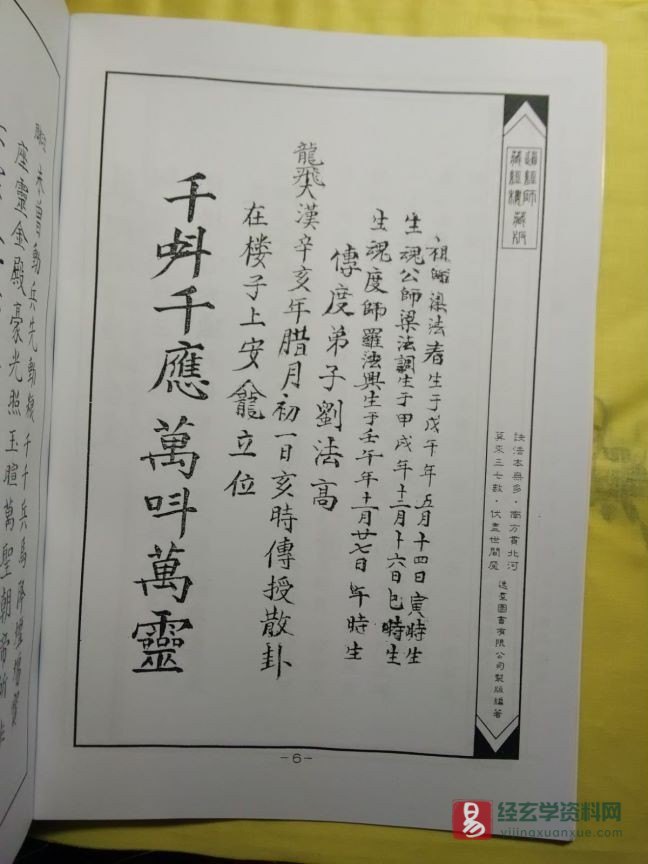 道經師
藏經樓藏版
訣法本無多·南方貫北河
算來三七數·伏盡世間魔
逸羣圖書有限公司製版編著
祖師梁法春生于戊午年五月十四日寅時生
生魂公師梁法調生于甲戌年十二月十六日巳時生
生魂度師羅法興生于壬午年十一月廿七日午時生
傳度弟子劉法高
龍飛大漢辛亥年腊月初一日亥時傳授散卦
在楼子上安龕立位
千斟千應萬叫萬靈
未曾動兵先動
千千兵馬降壇場
座靈金殿豪光照玉暄萬聖朝帝
-6-
经玄学资料网
yijingxuanxue.com